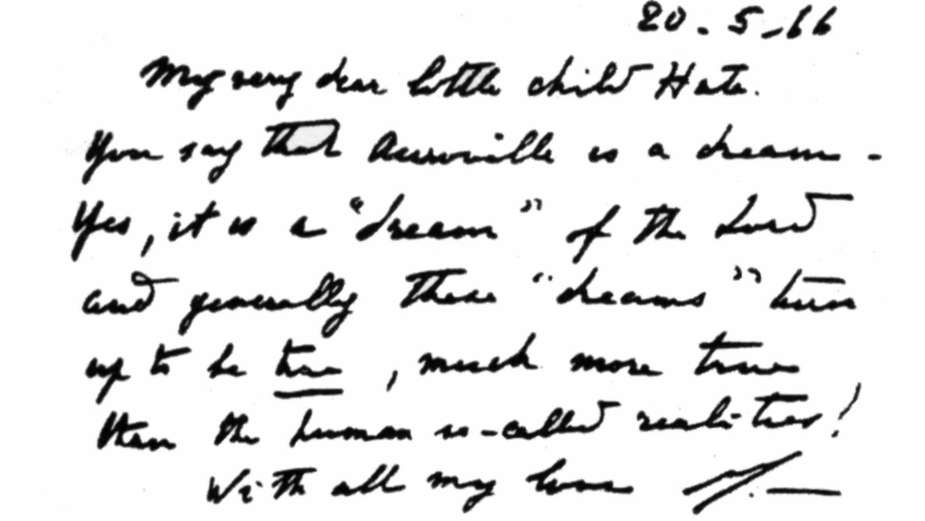 20-5-66
My very dear little child Huta.
You say that Auroville is a dream -
Yes, it is a "dream" of the Lord
and generally these "dreams" turn
up to be true, much more true
than the human so-called realities!
With all my love